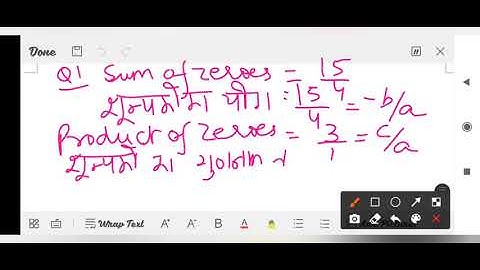 Done
Q1 Sum of zeroes = 15/4
शून्यकों का योग : 15/4 = -b/a
Product of zeroes = 3/1 = c/a
शून्यकों का गुणनफल
Wrap Text A+ A- B A